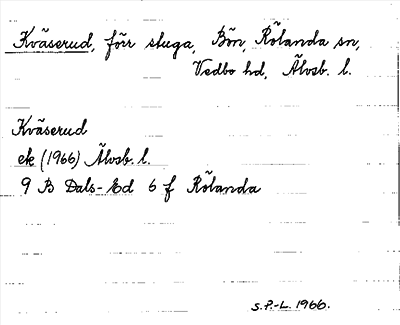 Kväserud, förr stuga, Bön, Rölanda sn,
Vedbo hd, Älvsb. l.
Kväserud
ek (1966) Älvsb. l.
9 B Dals-Ed 6 f Rölanda
S.P.-L. 1966.